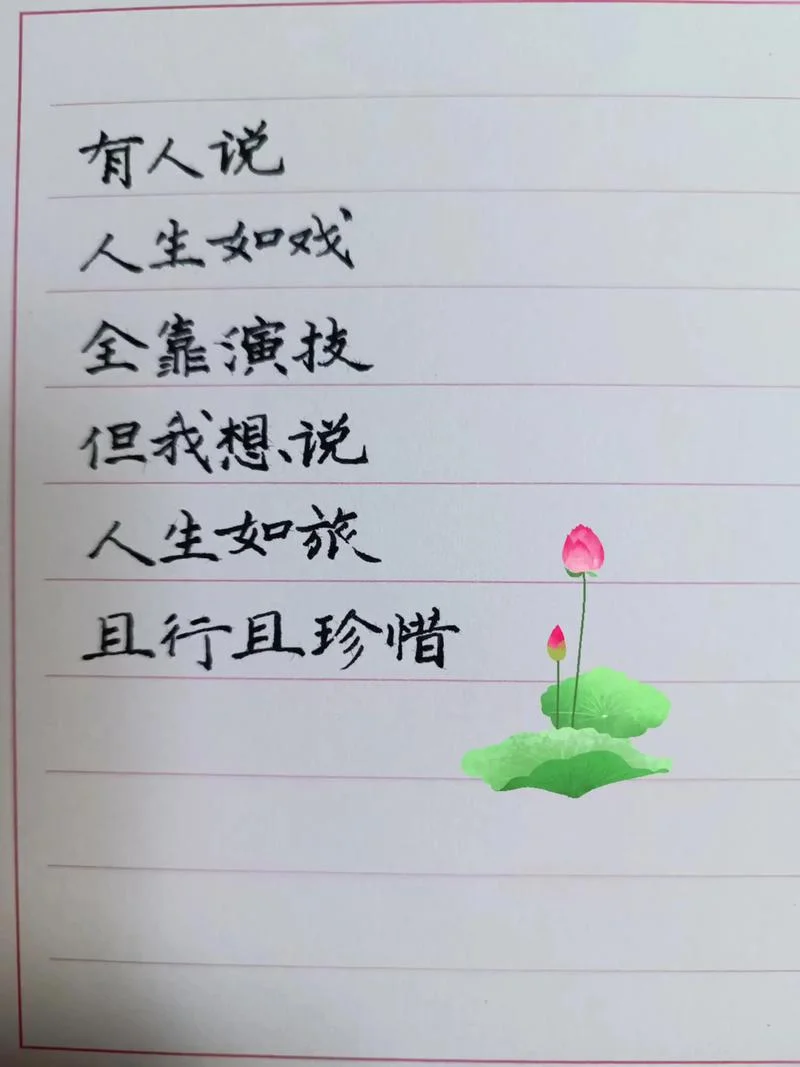 有人说
人生如戏
全靠演技
但我想、说
人生如旅
且行且珍惜